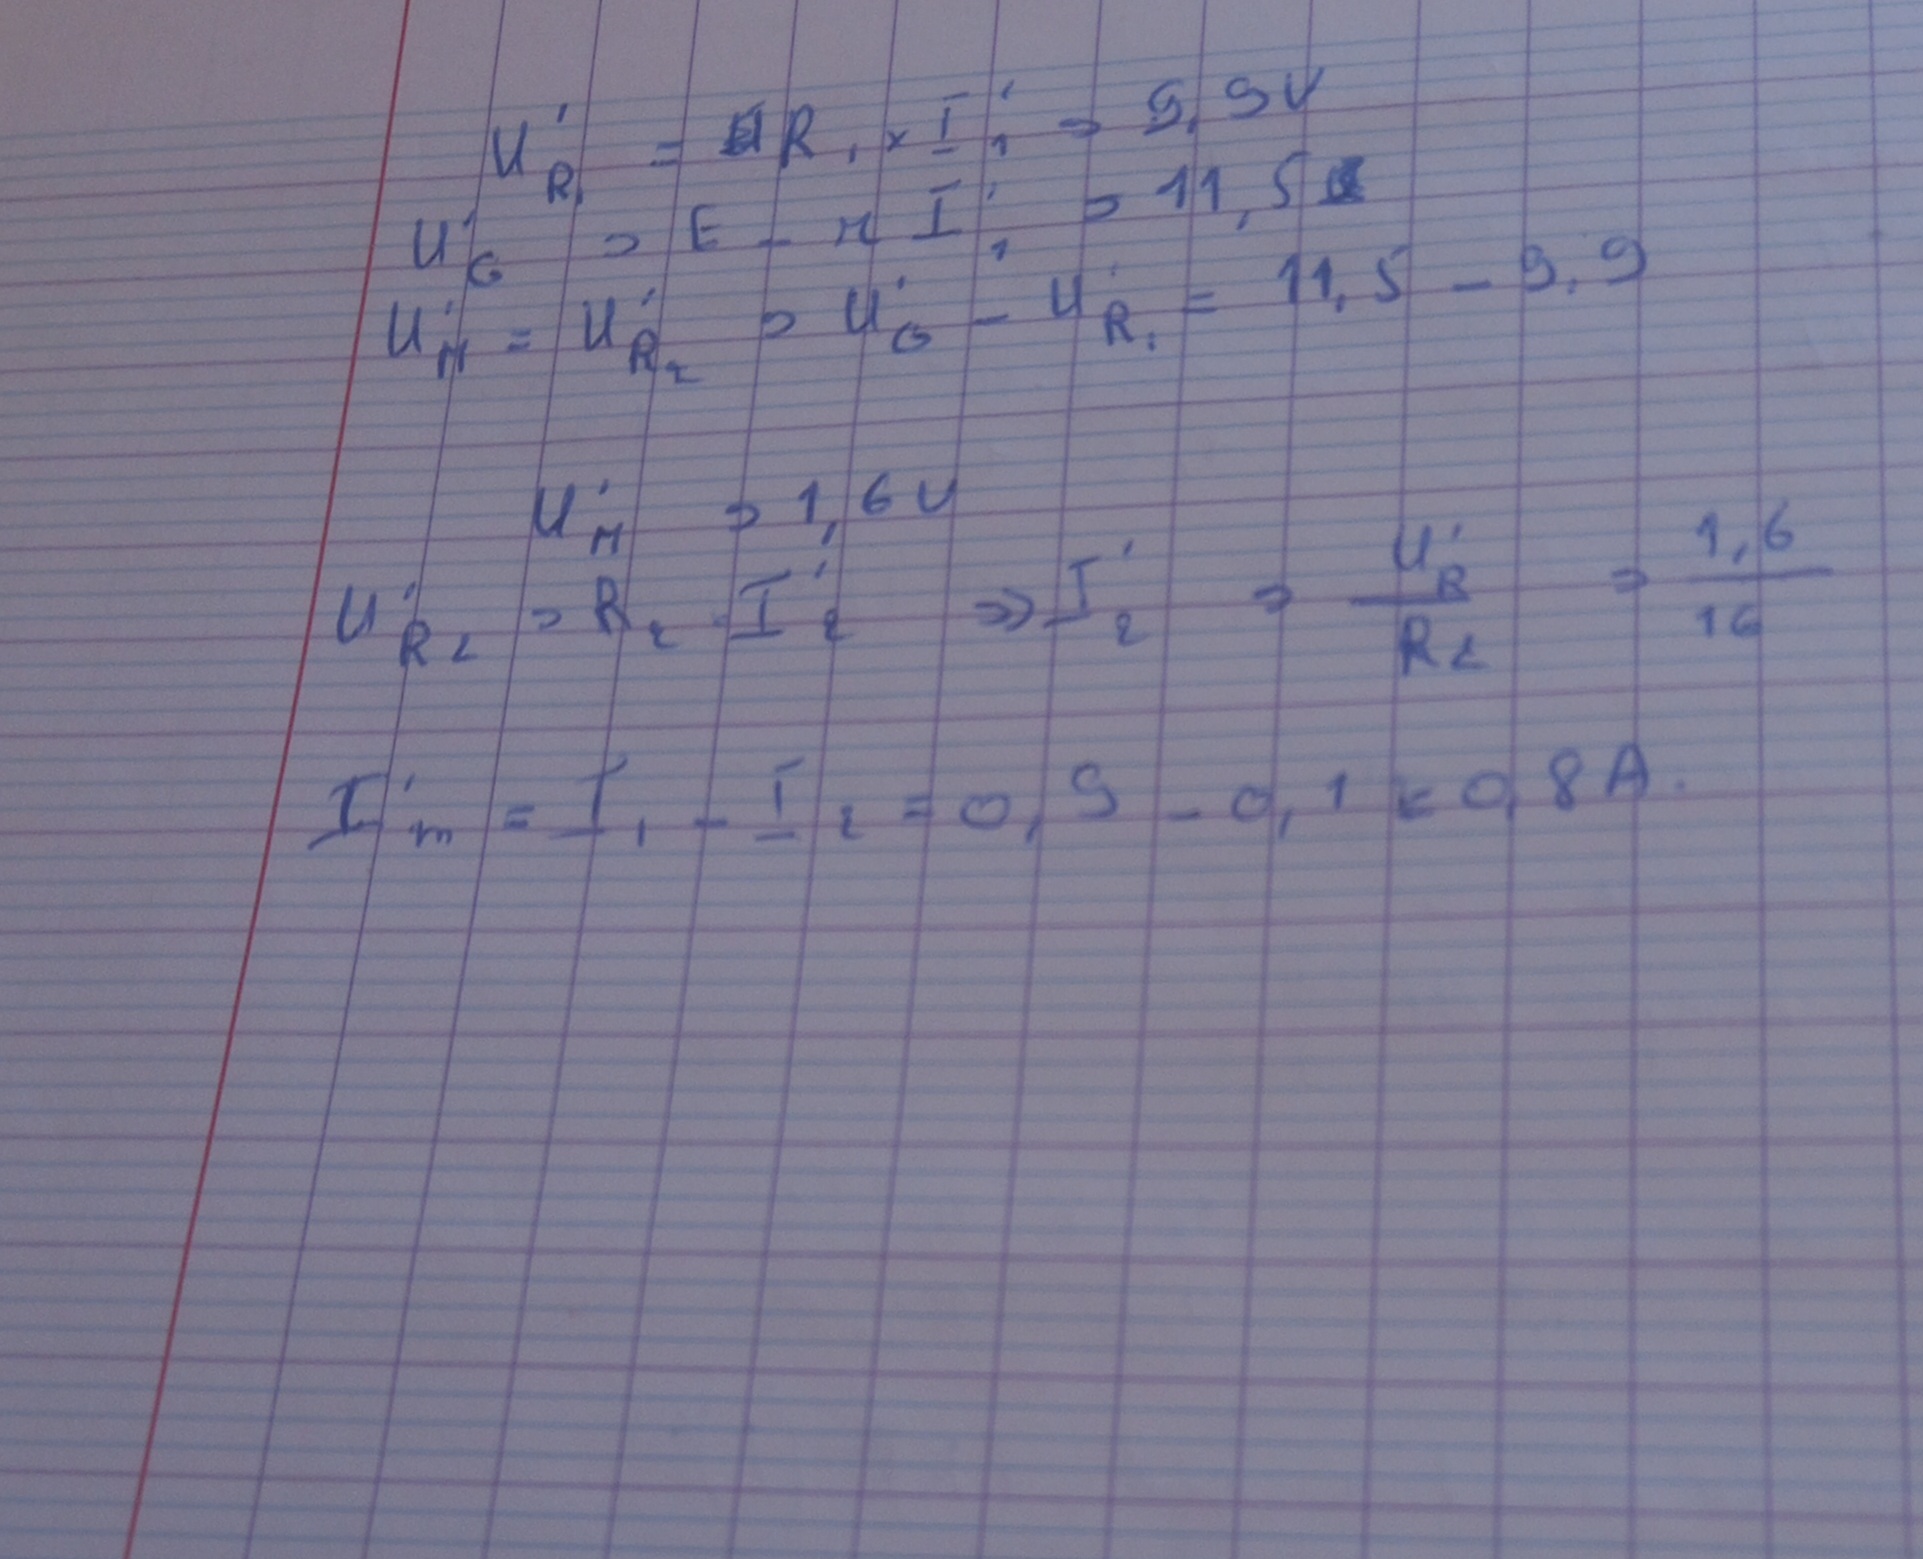 U'R1 = R1 × I'1 = 9,9V
U'G = E - r I'1 = 11,5
U'M = U'R2 = U'G - U'R1 = 11,5 - 9,9
U'M = 1,6V
U'R2 = R2 · I'2 ⇒ I'2 = U'R/R2 = 1,6/16
I'm = I1 - I2 = 0,9 - 0,1 = 0,8A.